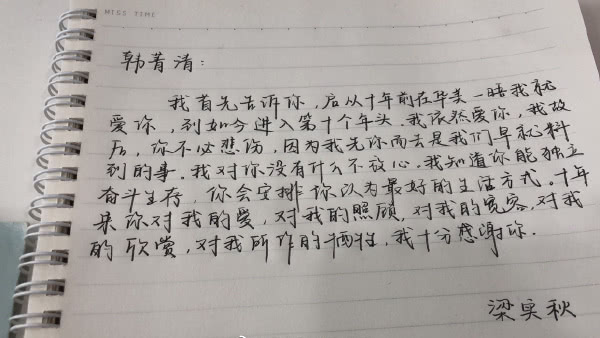 MISS TIME
韩菁清:
我首先告诉你,后从十年前在华美一晤我就
爱你,到如今进入第十个年头,我依然爱你,我故
后,你不必悲伤,因为我先你而去是我们早就料
到的事。我对你没有什么不放心,我知道你能独立
奋斗生存,你会安排你以为最好的生活方式。十年
来你对我的爱,对我的照顾,对我的宽容,对我
的欣赏,对我所作的牺牲,我十分感谢你.
梁实秋